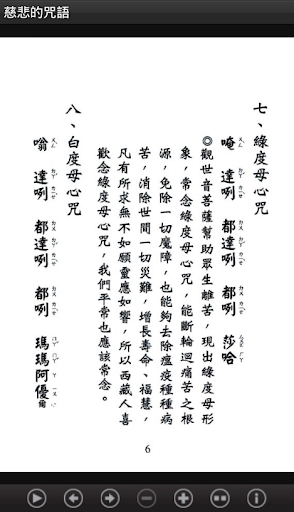 慈悲的咒語
七、綠度母心咒
唵 達咧 都達咧 都咧 莎哈
◎觀世音菩薩幫助眾生離苦，現出綠度母形
象，常念綠度母心咒，能斷輪迴痛苦之根
源，免除一切魔障，也能夠去除瘟疫種種病
苦，消除世間一切災難，增長壽命、福慧，
凡有所求無不如願靈應如響，所以西藏人喜
歡念綠度母心咒，我們平常也應該常念。
八、白度母心咒
嗡 達咧 都達咧 都咧 瑪瑪阿優爾
6